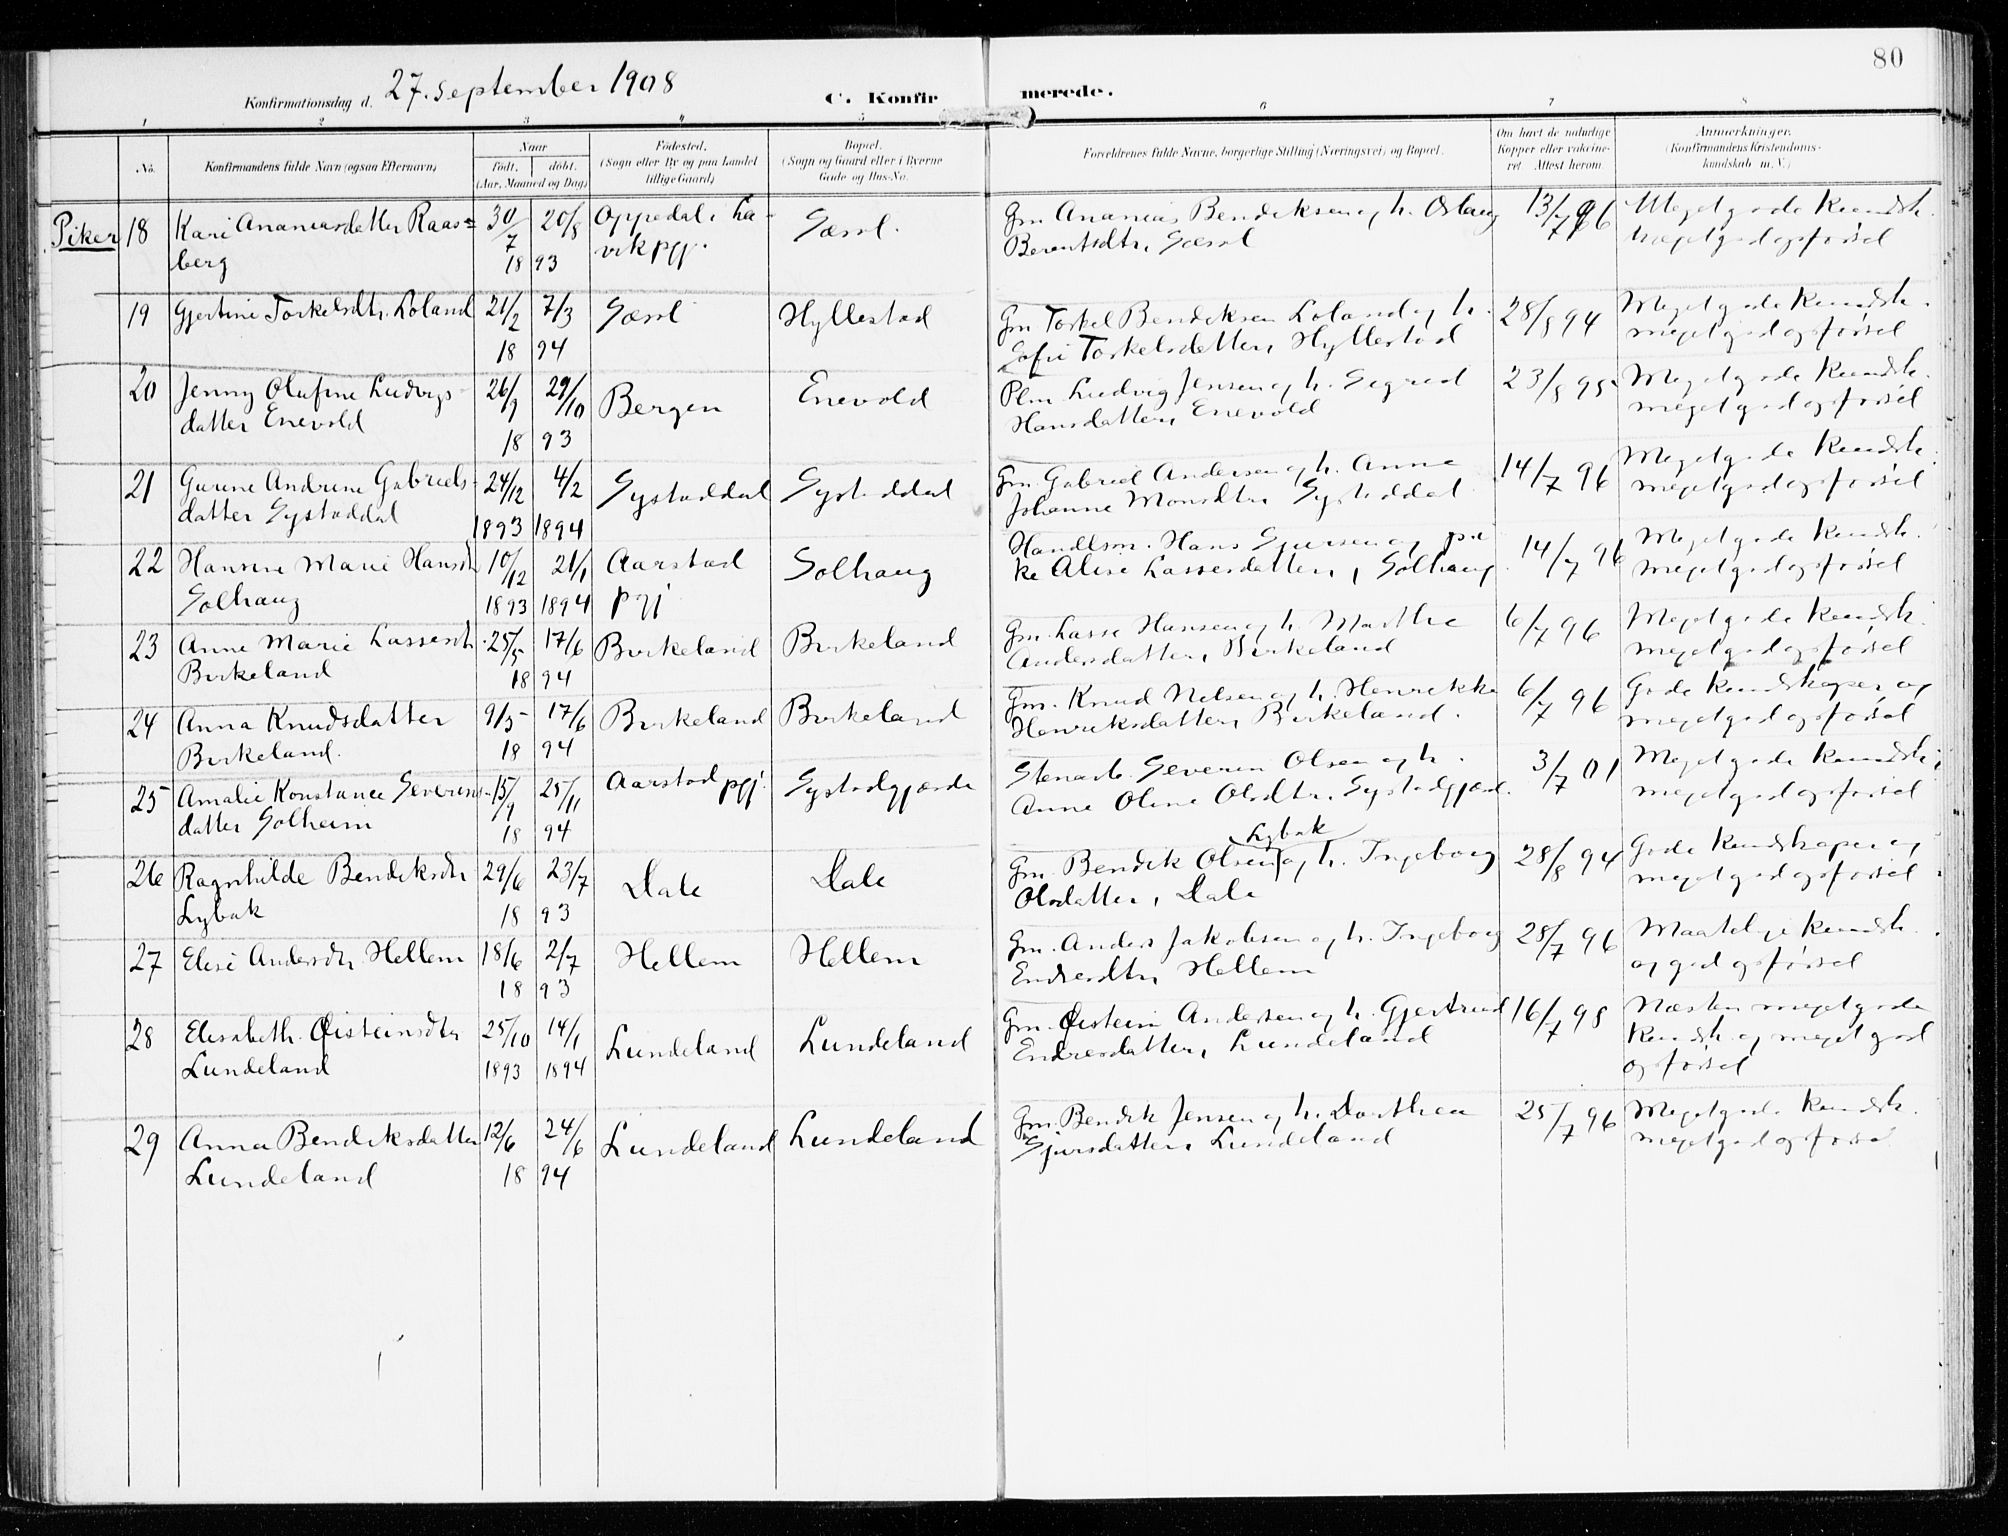 80
Konfirmationsdag d. 27. september 1908
C. Konfirmerede.
1 2 3 4 5 6 7 8
No.
Konfirmandens fulde Navn (ogsaa Efternavn)
Naar
födt. döbt.
(Aar, Maaned og Dag)
Födested.
(Sogn eller By og paa Landet
tillige Gaard)
Bopæl.
(Sogn og Gaard eller i Byerne
Gade og Hus-No.
Forældrenes fulde Navne, borgerlige Stilling (Næringsvei) og Bopæl.
Om havt de naturlige
Kopper eller vakcine-
ret. Attest herom.
Anmærkninger.
(Konfirmandens Kristendoms-
kundskab m. V.)
Piker 18 Kari Ananiasdatter Raas= 30/7 20/8 Oppedal i La- Gm. Ananias Bendiksen og h. Oslaug 13/7 96 Meget gode kundsk.
berg 18 93 vik pgj. Berentsdtr, meget god opførsel
19 Gjertine Torkelsdtr. Loland 21/2 7/3 Hyllestad Gm Torkel Bendiksen Loland og h. 28/8 94 Meget gode kundsk.
18 94 Sofie Torkelsdatter, Hyllestad meget god opførsel
20 Jenny Olufine Ludvigs- 26/9 29/10 Bergen Enevold Plm Ludvig Jensen og h. Sigrid 23/8 95 Meget gode kundsk.
datter Enevold 18 93 Hansdatter, Enevold meget god opførsel
21 Gurine Andrine Gabriels- 24/12 4/2 Systaddal Systaddal Gm. Gabriel Andersen og h. Anne 14/7 96 Meget gode kundsk.
datter Systaddal 1893 1894 Johanne Monsdtr, Systaddal meget god opførsel
22 Hansine Marie Hansdtr 10/12 21/1 Aarstad Solhaug Handlsm. Hans Sjursen og pi- 14/7 96 Meget gode kundsk.
Solhaug 1893 1894 pgj ke Alise Lassesdatter, Solhaug meget god opførsel
23 Anne Marie Lassesdtr 25/5 17/6 Birkeland Birkeland Gm. Lasse Hansen og h. Marthe 6/7 96 Meget gode kundsk.
Birkeland 18 94 Andersdatter, Birkeland meget god opførsel
24 Anna Knudsdatter 9/5 17/6 Birkeland Birkeland Gm. Knud Nilsen og h. Henrikke 6/7 96 Gode kundskaper og
Birkeland. 18 94 Henriksdatter, Birkeland. meget god opførsel
25 Amalie Konstance Severins- 15/9 25/11 Aarstad pgj. Systadgjærde Stenarb. Severin Olsen og h. 3/7 01 Meget gode kundsk.
datter Solheim 18 94 Anne Oline Olsdtr, Systadgjærd. meget god opførsel
Lybak
26 Ragnhilde Bendiksdtr 29/6 23/7 Dale Dale Gm. Bendik Olsen og h. Ingeborg 28/8 94 Gode kundskaper og
Lybak 18 93 Olsdatter, Dale meget god opførsel
27 Elise Andersdtr Hellem 18/6 2/7 Hellem Hellem Gm. Anders Jakobsen og h. Ingeborg 28/7 96 Maatelige kundsk.
18 93 Endresdtr, Hellem og god opførsel
28 Elisabeth Øisteinsdtr 25/10 14/1 Lundeland Lundeland Gm. Øistein Andersen og h. Gjertrud 16/7 98 Næsten meget gode
Lundeland 1893 1894 Endresdatter, Lundeland kundsk. og meget god
opførsel
29 Anna Bendiksdatter 12/6 24/6 Lundeland Lundeland Gm. Bendik Jensen og h. Dorthea 25/7 96 Meget gode kundsk.
Lundeland 18 94 Sjursdatter, Lundeland meget god opførsel